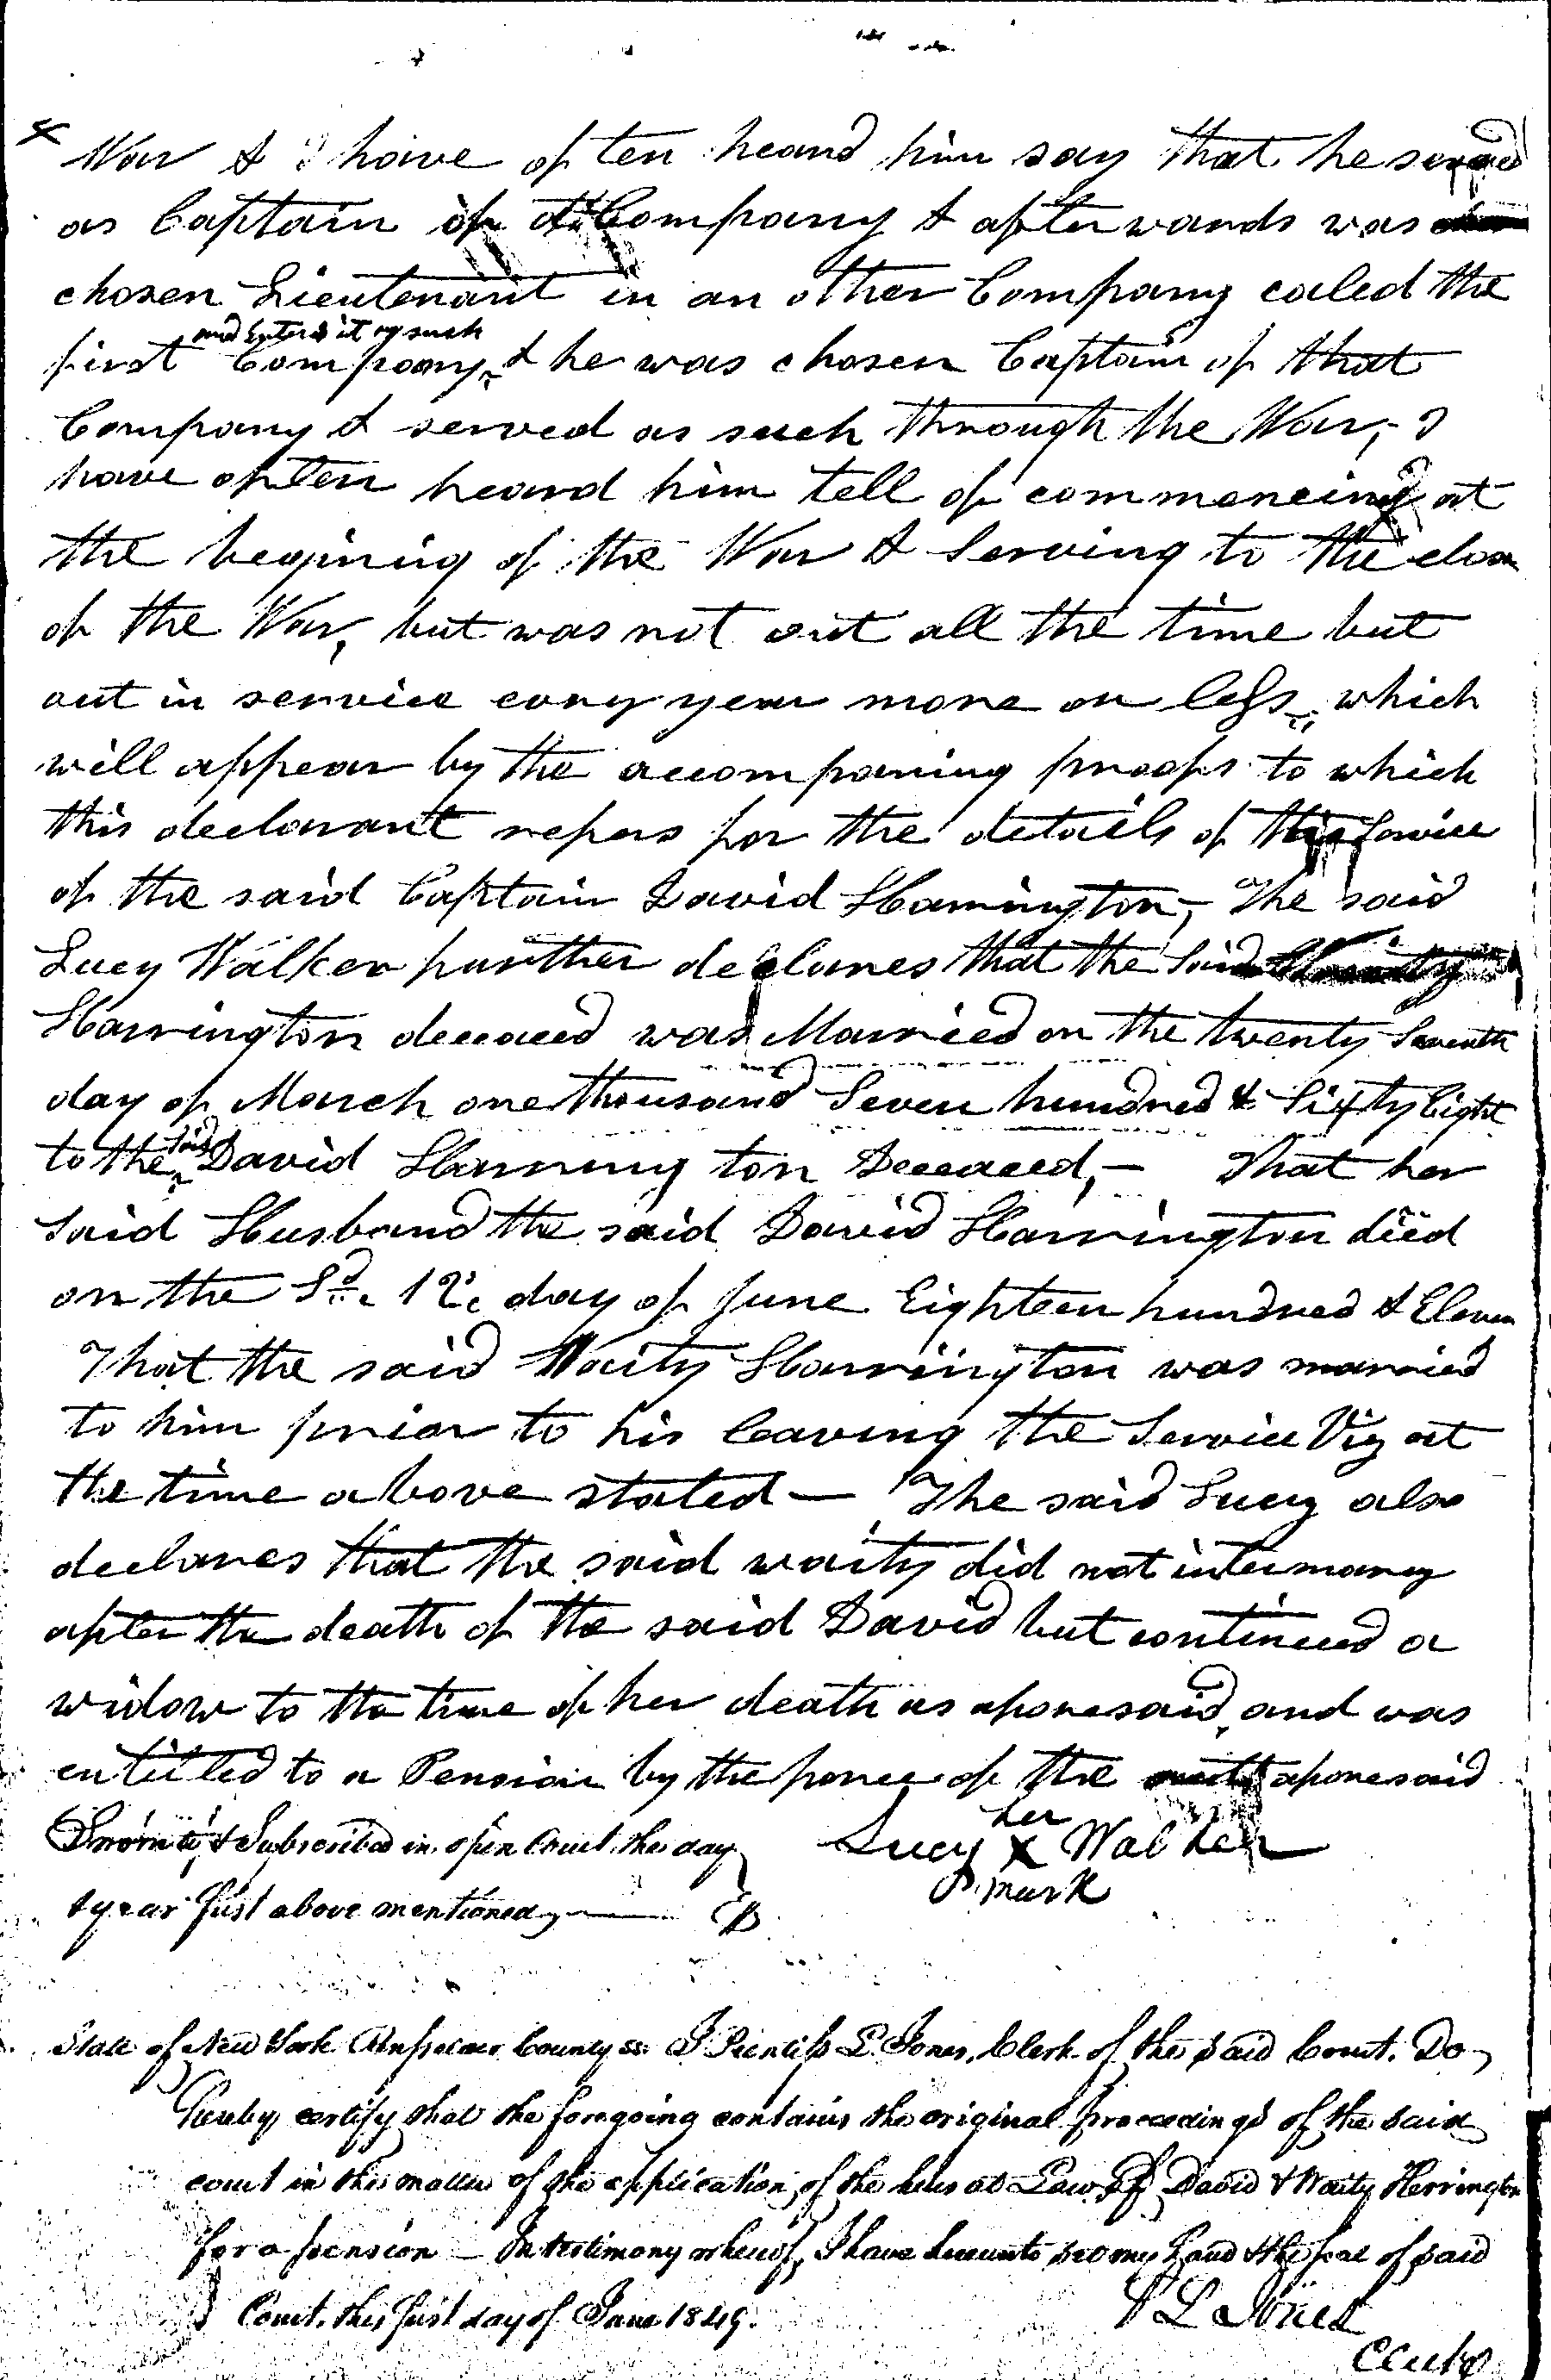 War & I have often heard him say that he served
as Captain of a Company & afterwards was
chosen Lieutenant in an other Company caled the
and Entered it as such
first Company & he was chosen Captain of that
Company & served as such through the War, - I
have often heard him tell of commencing at
the begining of the War & Serving to the close
of the War, but was not out all the time but
out in service evry year more or less, which
will appear by the accompaning proofs to which
this declarant refers for the details of the Service
of the said Captain David Harrington, - The said
Lucy Walker further declares that the Said Waity
Harrington deceaced was Married on the twenty Seventh
day of March one thousand Seven hundred & Sixty Eight
to the said David Harrington Deceaced, - That her
Said Husband the said David Harrington died
on the Sd. 12. day of June Eighteen hundred & Eleven
That the said Waity Harrington was married
to him prior to his leaving the Service Viz at
the time above stated - The said Lucy also
declares that the said waity did not intermarry
after the death of the said David but continued a
widow to the time of her death as aforesaid, and was
entitled to a Pension by the force of the aforesaid
Sworn to & Subscribed in open Court the day
& year first above mentioned
her
Lucy X Walker
mark
State of New York Rensselaer County ss. I Prentiss L Jones, Clerk of the said Court. Do
hereby certify that the foregoing contains the original proceedings of the said
court in the matter of the application of the heirs at Law of David & Waity Herrington
for a pension - In testimony whereof, I have hereunto set my hand & the seal of said
Court, this first day of June 1849.
P L Jones
Clerk